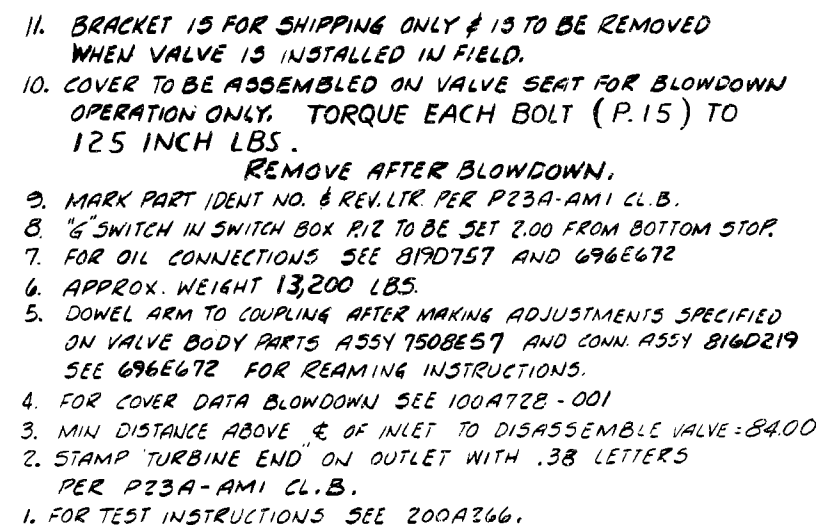 11. BRACKET IS FOR SHIPPING ONLY & IS TO BE REMOVED
WHEN VALVE IS INSTALLED IN FIELD.
10. COVER TO BE ASSEMBLED ON VALVE SEAT FOR BLOWDOWN
OPERATION ONLY. TORQUE EACH BOLT (P.15) TO
125 INCH LBS.
REMOVE AFTER BLOWDOWN.
9. MARK PART IDENT NO. & REV. LTR. PER P23A-AM1 CL.B.
8. "G" SWITCH IN SWITCH BOX P.12 TO BE SET 2.00 FROM BOTTOM STOP.
7. FOR OIL CONNECTIONS SEE 819D757 AND 696E672
6. APPROX. WEIGHT 13,200 LBS.
5. DOWEL ARM TO COUPLING AFTER MAKING ADJUSTMENTS SPECIFIED
ON VALVE BODY PARTS ASSY 7508E57 AND CONN. ASSY 816D219
SEE 696E672 FOR REAMING INSTRUCTIONS.
4. FOR COVER DATA BLOWDOWN SEE 100A728-001
3. MIN DISTANCE ABOVE ℄ OF INLET TO DISASSEMBLE VALVE = 84.00
2. STAMP "TURBINE END" ON OUTLET WITH .38 LETTERS
PER P23A-AM1 CL.B.
1. FOR TEST INSTRUCTIONS SEE 200A266.